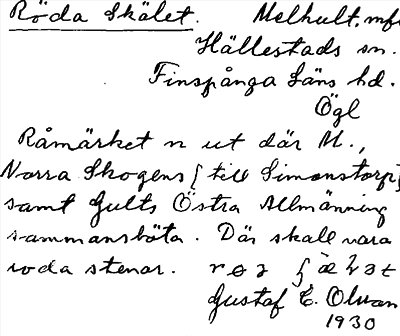 Röda Skälet. Melhult. mfl
Hällestads sn.
Finspånga läns hd.
Ögl
Råmärket n ut där M.,
Norra Skogens [till Simonstorp]
samt Gults Östra Allmänning
sammanstöta. Där skall vara
röda stenar.
Gustaf E. Olsson
1930